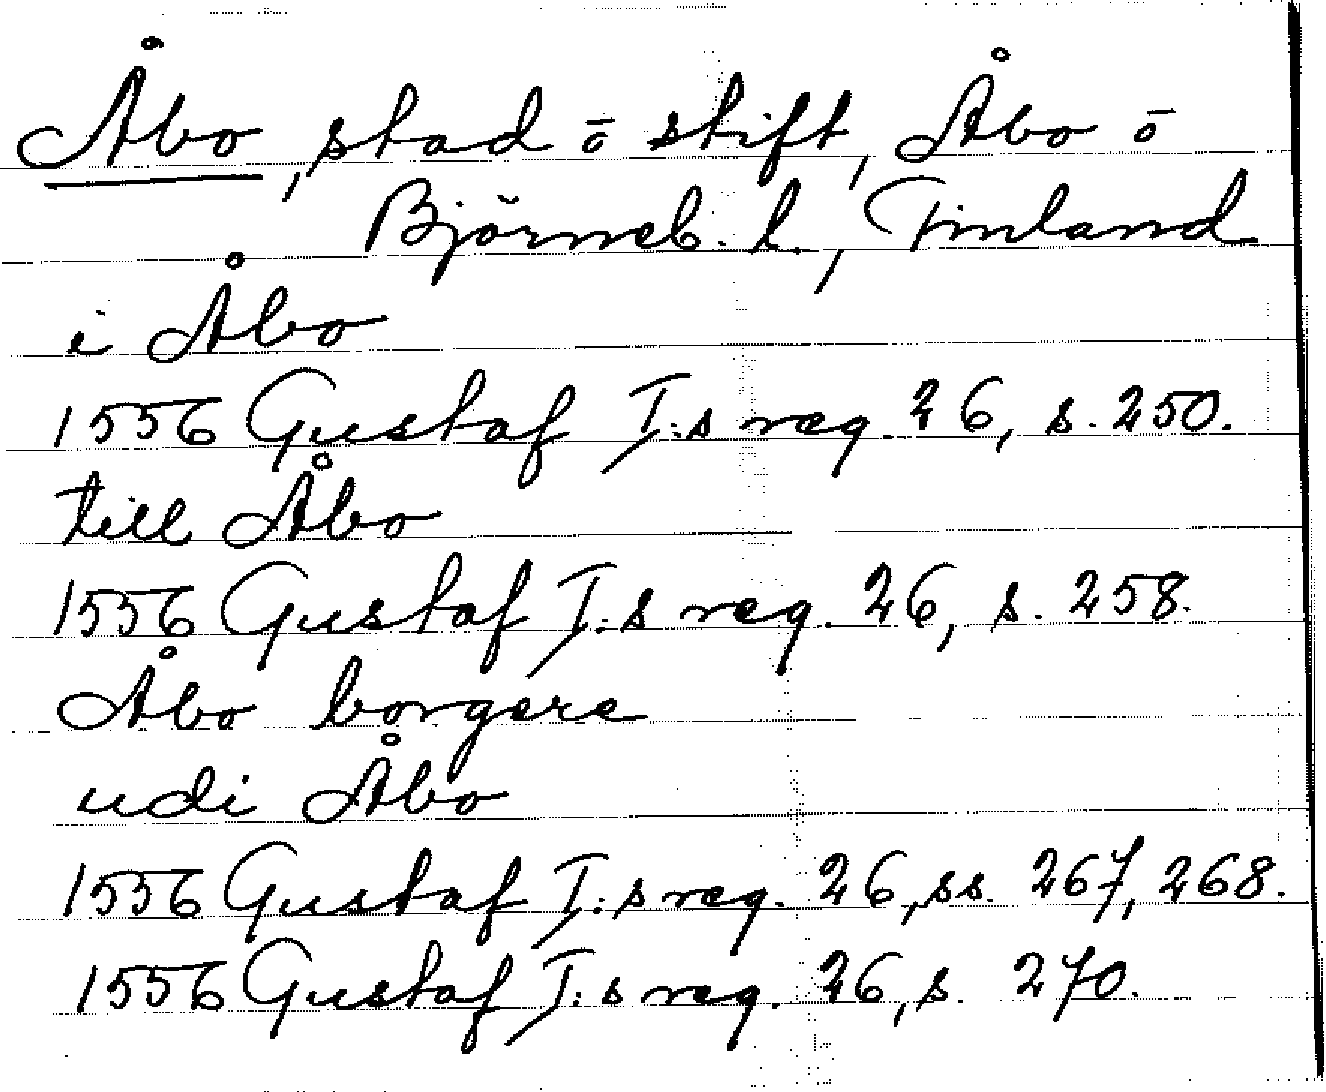 Åbo, stad ō stift, Åbo ō
Björneb. l., Finland
i Åbo
1556 Gustaf I:s reg. 26, s. 250.
till Åbo
1556 Gustaf I:s reg. 26, s. 258.
Åbo borgere
udi Åbo
1556 Gustaf I:s reg. 26, ss. 267, 268.
1556 Gustaf I:s reg. 26, s. 270.